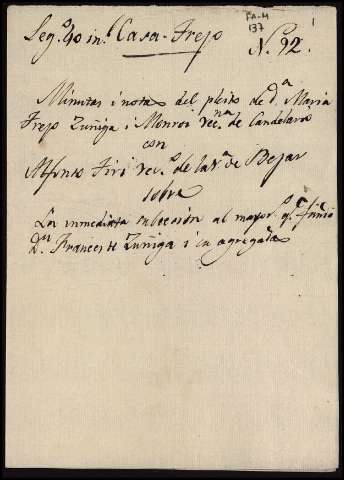 FA-M
137
1
Leg.º 40 in.l Casa-Trejo
N. 92.
Minutas i notas del pleito de d.ª Maria
Trejo Zuñiga i Monroi vec.na de Candelario
con
Alfonso Tiri vec.º de la v.ª de Bejar
sobre
La inmediata subcesion al mayor.º q.e fundó
D.n Frances de Zuñiga i su agregado